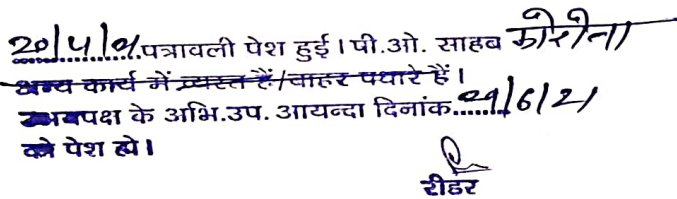 20/4/21 पत्रावली पेश हुई। पी.ओ. साहब कोरोना
अन्य कार्य में व्यस्त हैं/बाहर पधारे हैं।
उभयपक्ष के अभि.उप. आयन्दा दिनांक......29/6/21
को पेश हो।
रीडर